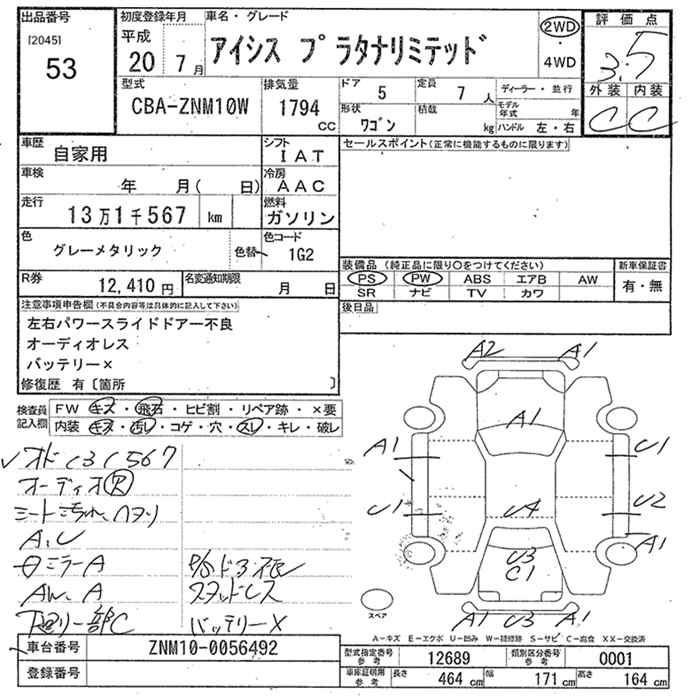 出品番号
[2045]
53
初度登録年月
平成
20 7月
車名・グレード
アイシス プラタナリミテッド
2WD
・
4WD
評価点
3.5
外装 内装
C C
型式
CBA-ZNM10W
排気量
1794
CC
ドア
5
定員
7人
ディーラー・並行
形状
ワゴン
積載
kg
モデル年式 年
ハンドル 左・右
車歴
自家用
シフト
IAT
セールスポイント(正常に機能するものに限ります)
車検
年 月( 日)
冷房
AAC
走行
13万1千567 km
燃料
ガソリン
色
グレーメタリック
色替
色コード
1G2
R券
12,410円
名変通知期限
月 日
装備品(純正品に限り○をつけてください)
PS PW ABS エアB AW
SR ナビ TV カワ
新車保証書
有・無
後日品
注意事項申告欄(不具合内容等は具体的に記入して下さい)
左右パワースライドドアー不良
オーディオレス
バッテリー×
修復歴 有〔箇所 〕
検査員記入欄
FW キズ・飛石・ヒビ割・リペア跡・×要
内装 キズ・汚レ・コゲ・穴・スレ・キレ・破レ
オーディオR
シート汚れ、ヘタリ
ミラーA
スタッドレス
バッテリーX
A2 A1
A1
A1 U1
U1 U2
UA
A1
U3
C1
A1 U3 A1
スペア
A-キズ E-エクボ U-凹み W-補修跡 S-サビ C-腐食 XX-交換済
車台番号
ZNM10-0056492
登録番号
型式指定番号参考
12689
類別区分番号参考
0001
車庫証明用参考
長さ 464 cm
幅 171 cm
高さ 164 cm